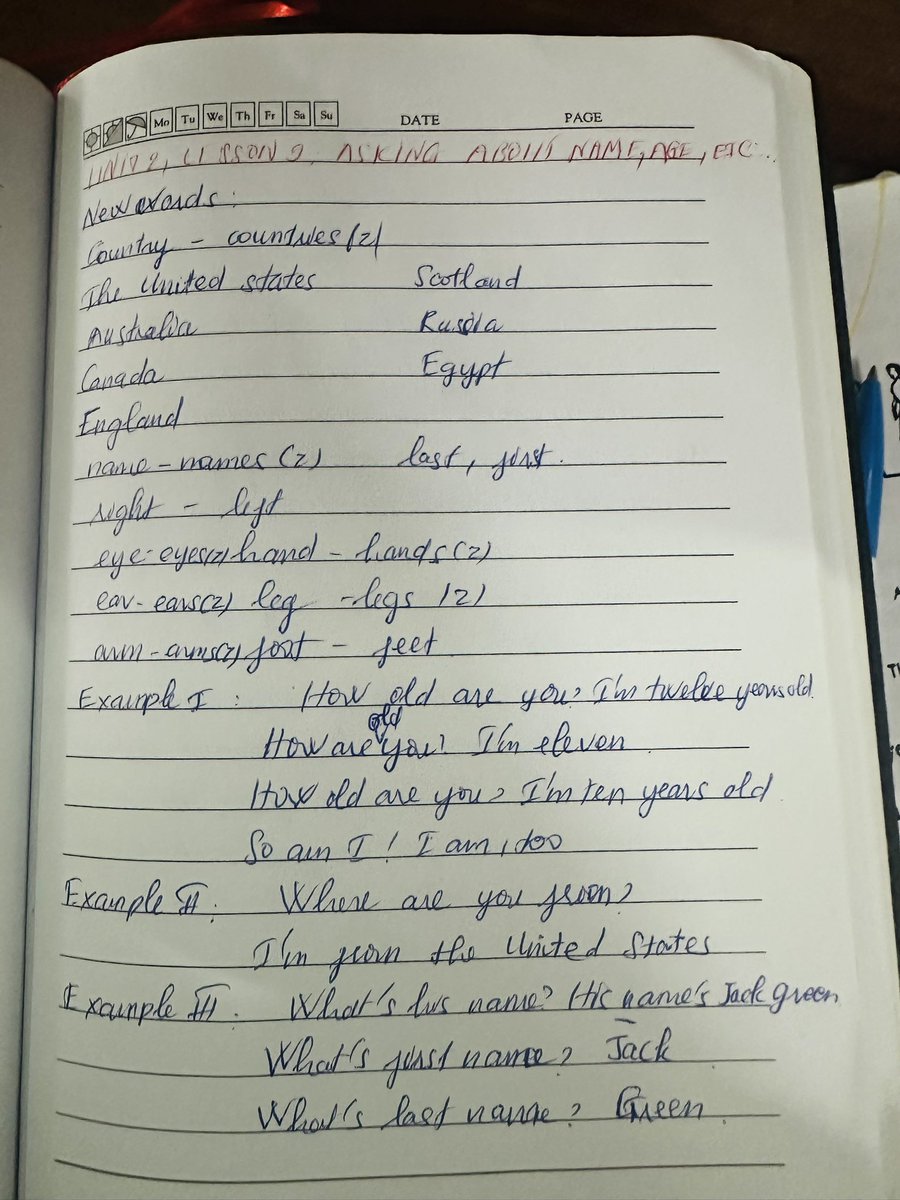 Mo Tu We Th Fr Sa Su DATE PAGE
UNIT 2, LISSON 2. ASKING ABOUT NAME, AGE, ETC...
New words:
Country - countries (z)
The United states Scotland
Australia Russia
Canada Egypt
England
name - names (z) last, first.
right - left
eye - eyes(z) hand - hands (z)
ear - ears(z) leg - legs (z)
arm - arms(z) foot - feet
Example I: How old are you? I'm twelve years old.
How are old you? I'm eleven.
How old are you? I'm ten years old.
So am I! I am, too
Example II. Where are you from?
I'm from the United States
Example III. What's his name? His name's Jack green
What's first name? Jack
What's last name? Green